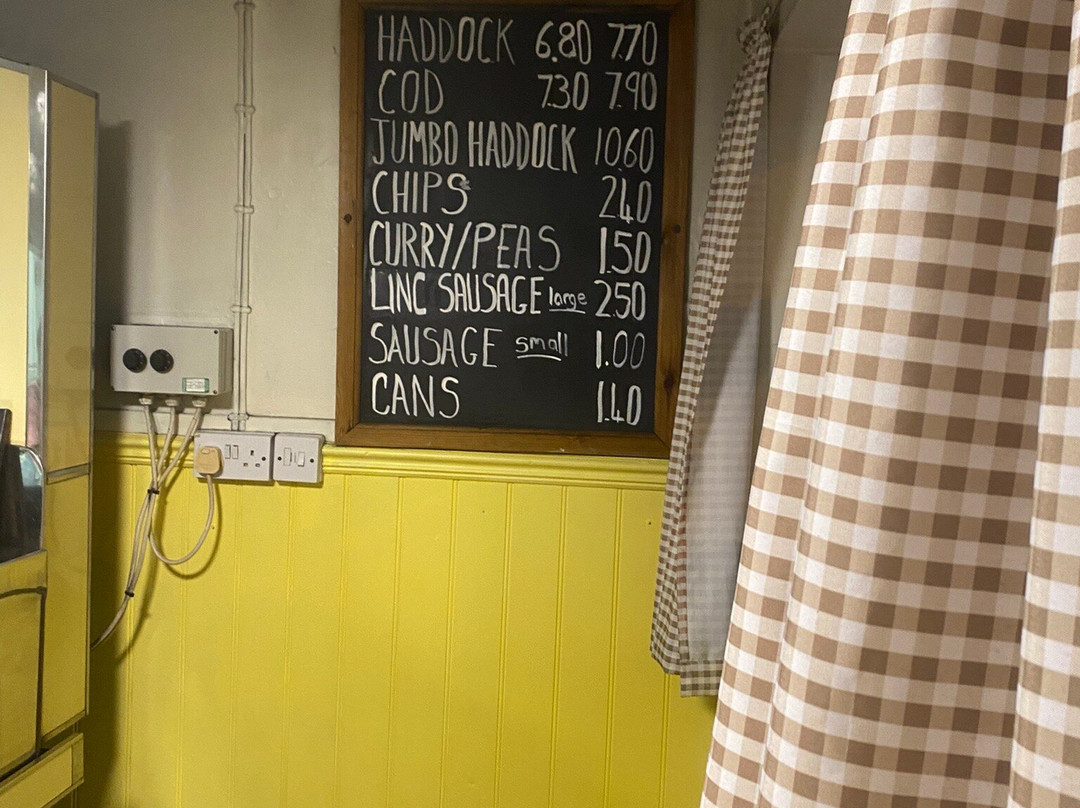 HADDOCK 6.80 7.70
COD 7.30 7.90
JUMBO HADDOCK 10.60
CHIPS 2.40
CURRY/PEAS 1.50
LINC SAUSAGE large 2.50
SAUSAGE small 1.00
CANS 1.40